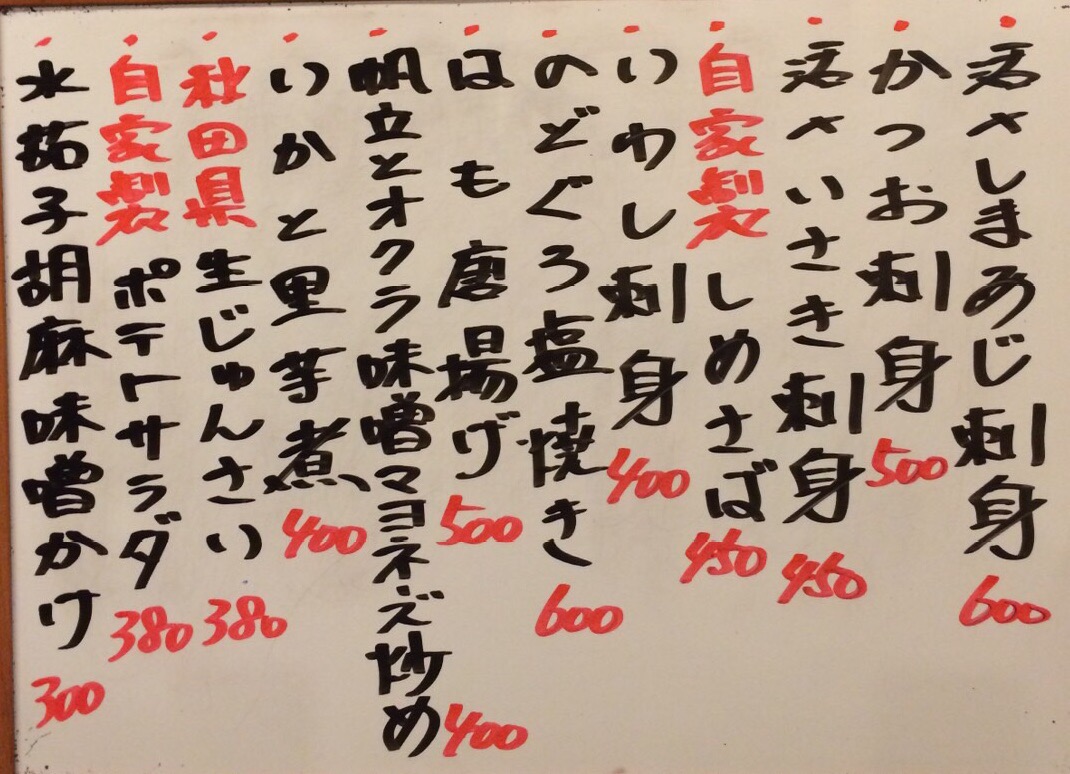 ・活〆しまあじ刺身 600
・かつお刺身 500
・活〆いさき刺身 450
・自家製しめさば 450
・いわし刺身 400
・のどぐろ塩焼き 600
・はも唐揚げ 500
・帆立とオクラ味噌マヨネズ炒め 400
・いかと里芋煮 400
・秋田県生じゅんさい 380
・自家製ポテトサラダ 380
・水茄子胡麻味噌かけ 300